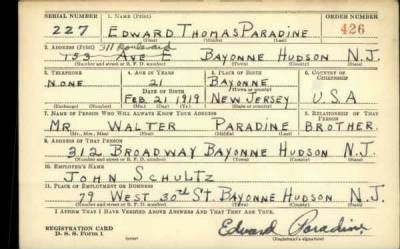 SERIAL NUMBER 1. NAME (Print) ORDER NUMBER
227 EDWARD THOMAS PARADINE 426
(First) (Middle) (Last)
2. ADDRESS (Print) 311 Boulevard
153 AVE E BAYONNE HUDSON N.J.
(Number and street or R. F. D. number) (Town) (County) (State)
3. TELEPHONE 4. AGE IN YEARS 5. PLACE OF BIRTH 6. COUNTRY OF CITIZENSHIP
NONE 21 BAYONNE
DATE OF BIRTH (Town or county)
FEB. 21 1919 NEW JERSEY U.S.A
(Exchange) (Number) (Mo.) (Day) (Yr.) (State or country)
7. NAME OF PERSON WHO WILL ALWAYS KNOW YOUR ADDRESS 8. RELATIONSHIP OF THAT PERSON
MR WALTER PARADINE BROTHER.
(Mr., Mrs., Miss) (First) (Middle) (Last)
9. ADDRESS OF THAT PERSON
312 BROADWAY BAYONNE HUDSON N.J.
(Number and street or R. F. D. number) (Town) (County) (State)
10. EMPLOYER'S NAME
JOHN SCHULTZ
11. PLACE OF EMPLOYMENT OR BUSINESS
79 WEST 30th ST. BAYONNE HUDSON N.J.
(Number and street or R. F. D. number) (Town) (County) (State)
I AFFIRM THAT I HAVE VERIFIED ABOVE ANSWERS AND THAT THEY ARE TRUE.
REGISTRATION CARD
D. S. S. Form 1
Edward Paradine
(Registrant's signature)